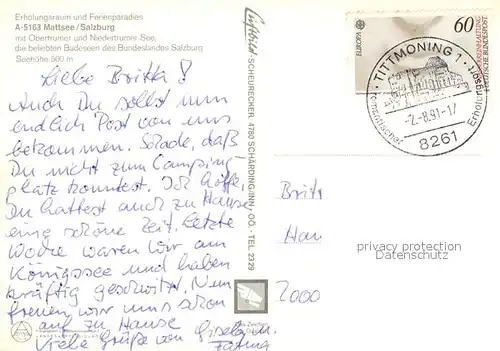 Erholungsraum und Ferienparadies
A-5163 Mattsee/Salzburg
mit Obertrumer und Niedertrumer See,
die beliebten Badeseen des Bundeslandes Salzburg
Seehöhe 500 m
Liebe Britta!
Auch Du sollst nun
endlich Post von uns
bekommen. Schade, daß
Du nicht zum Camping-
platz konntest. Ich hoffe,
Du hattest auch zu Hause
eine schöne Zeit. Letzte
Woche waren wir am
Königssee und haben
kräftig geschwitzt. Nun
freuen wir uns schon
auf zu Hause
Viele Grüße von Gisela
Luftbild-SCHEURECKER, 4780 SCHÄRDING/INN, OÖ. - TEL 2329
EUROPA
60
DEUTSCHE BUNDESPOST
TITTMONING 1
romantischer Erholungsort
-2.-8.91-17
8261
Brit
Han
2000
privacy protection
Datenschutz